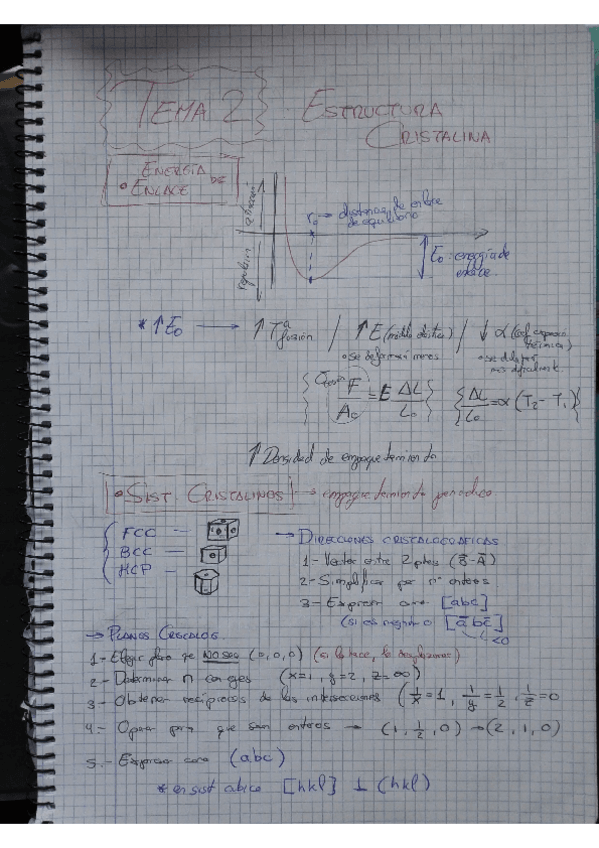 TEMA 2 ESTRUCTURA
CRISTALINA
• ENERGÍA DE
ENLACE
atracción
repulsión
r₀ → distancia de enlace
de equilibrio
E₀: energía de
enlace.
* ↑ E₀ → ↑ Tª fusión / ↑ E (módulo elástico) / ↓ α (coef expansión térmica)
• se deforman menos • se dilatan
F/A₀ = E ΔL/L₀ ΔL/L₀ = α (T₂ - T₁)
↑ Densidad de empaquetamiento
• SIST. CRISTALINOS → empaquetamiento periódico
FCC —
BCC —
HCP —
→ DIRECCIONES CRISTALOGRÁFICAS
1- Vector entre 2 ptos (B̄-Ā)
2- Simplificar por nº enteros
3- Expresar como [abc]
(si es negativo [ābc̄]
<0
→ PLANOS CRISTALOG
1- Elegir plano que NO SEA (0,0,0) (si lo hace, lo desplazamos)
2- Determinar ∩ con ejes (x=1, y=2, z=∞)
3- Obtener recíprocos de las intersecciones (1/x=1, 1/y=1/2, 1/z=0
4- Operar para que sean enteros → (1, 1/2, 0) → (2, 1, 0)
5.- Expresar como (abc)
* en sist cúbico [hkl] ⊥ (hkl)